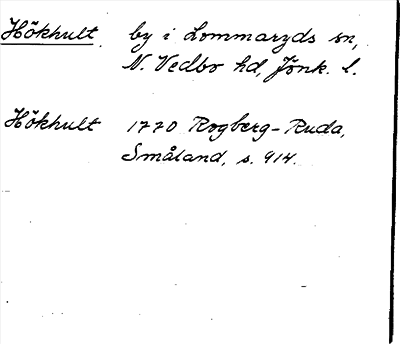 Hökhult. by i Lommaryds sn,
N. Vedbo hd, Jönk. l.
Hökhult 1770 Rogberg-Ruda,
Småland, s. 914.